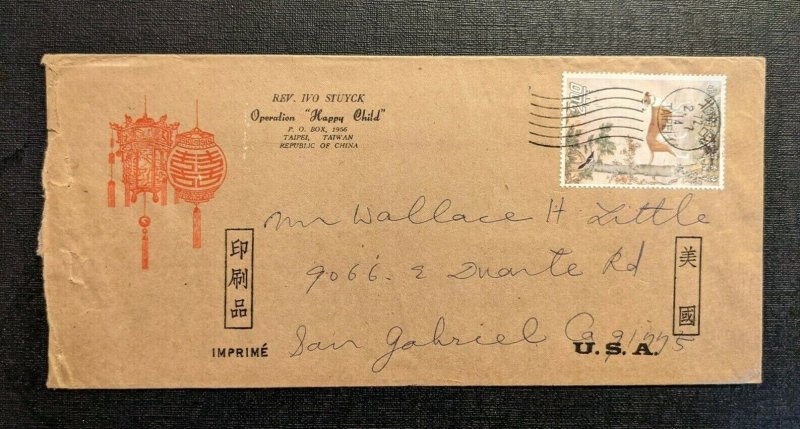 REV. IVO STUYCK
Operation "Happy Child"
P. O. BOX, 1956
TAIPEI, TAIWAN
REPUBLIC OF CHINA
Mr Wallace H Little
9066 E Duarte Rd
San Gabriel Ca 91775
印刷品
IMPRIMÉ
美國
U.S.A.